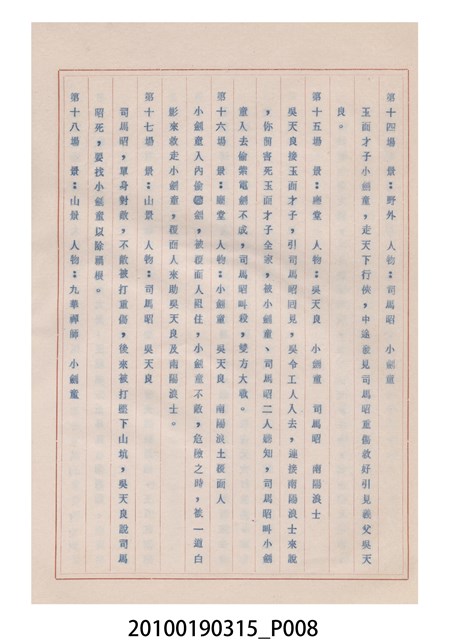 第十四場　景：野外　人物：司馬昭　小劍童
玉面才子小劍童，走天下行俠，中途看見司馬昭重傷救好引見義父吳天
良。
第十五場　景：廳堂　人物：吳天良　小劍童　司馬昭　南陽浪士
吳天良接玉面才子，引司馬昭回見，吳令工人入去，連接南陽浪士來說
，你前害死玉面才子全家，被小劍童、司馬昭二人聽知，司馬昭叫小劍
童入去偷紫電劍不成，司馬昭叫殺，雙方大戰。
第十六場　景：廳堂　人物：小劍童　吳天良　南陽浪士覆面人
小劍童入內偷劍，被覆面人阻住，小劍童不敵，危險之時，被一道白
影來救走小劍童，覆面人來助吳天良及南陽浪士。
第十七場　景：山景　人物：司馬昭　吳天良
司馬昭，單身對敵，不敵被打重傷，後來被打墜下山坑，吳天良說司馬
昭死，要找小劍童以除禍根。
第十八場　景：山景　人物：九華禪師　小劍童
20100190315_P008